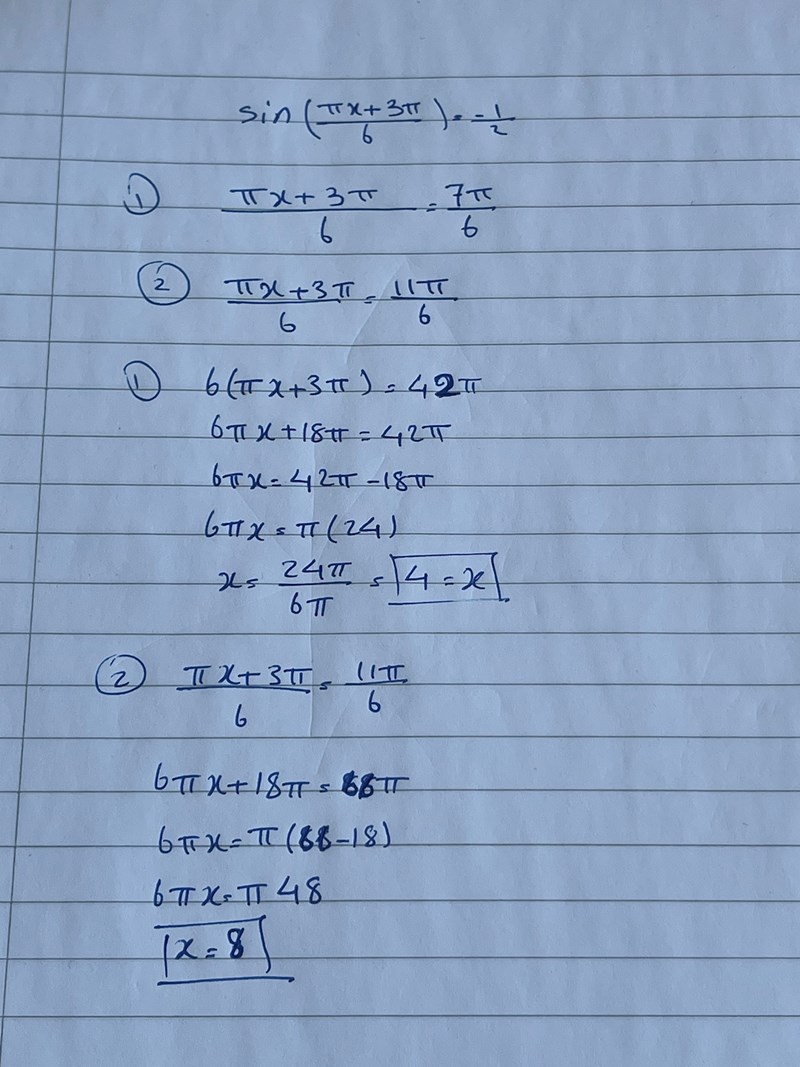 sin(πx+3π/6) = -1/2
① πx+3π/6 = 7π/6
② πx+3π/6 = 11π/6
① 6(πx+3π) = 42π
6πx+18π = 42π
6πx = 42π-18π
6πx = π(24)
x = 24π/6π = 4 = x
② πx+3π/6 = 11π/6
6πx+18π = 66π
6πx = π(66-18)
6πx = π 48
x = 8